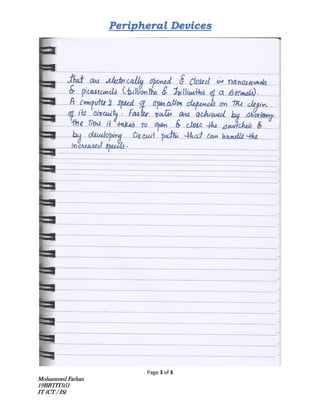 Peripheral Devices
That are electrically opened & closed in nanoseconds
& picoseconds (billionths & Trillionths of a second).
A computer's speed of operation depends on the degin
of its circuity. Faster rates are achieved by shortening
the time it takes to open & close the switches &
by developing Circuit paths that can handle the
increased speeds.
Page 3 of 3
Mohammed Farhan
IT (CT / IS)